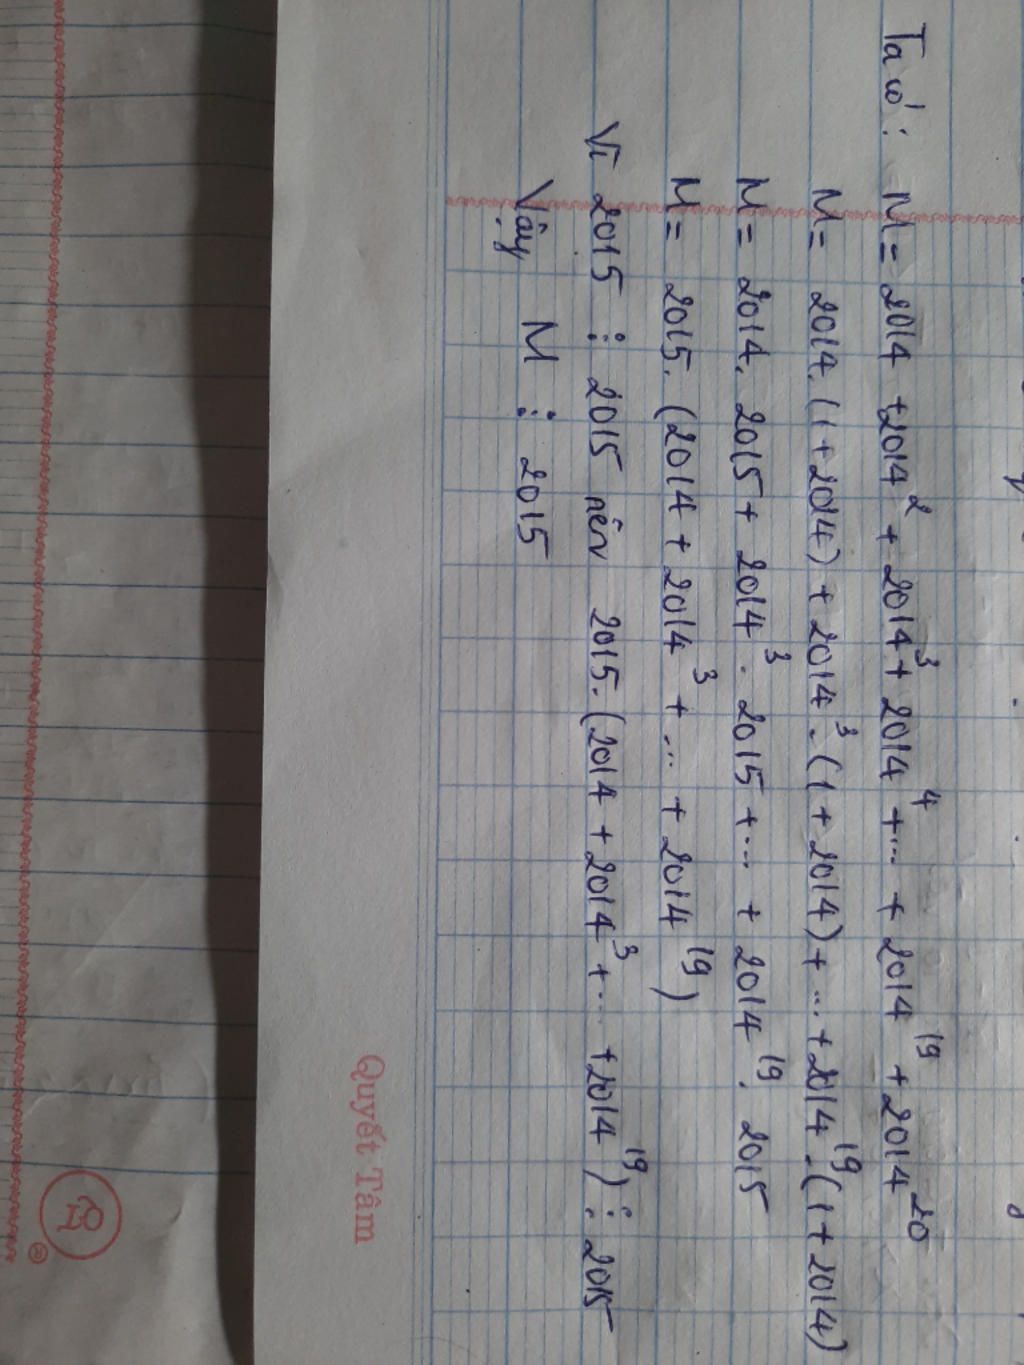 Ta có: M = 2014 + 2014² + 2014³ + 2014⁴ + ... + 2014¹⁹ + 2014²⁰
M = 2014. (1 + 2014) + 2014³. (1 + 2014) + ... + 2014¹⁹. (1 + 2014)
M = 2014. 2015 + 2014³. 2015 + ... + 2014¹⁹. 2015
M = 2015. (2014 + 2014³ + ... + 2014¹⁹)
Vì 2015 ⋮ 2015 nên 2015. (2014 + 2014³ + ... + 2014¹⁹) ⋮ 2015
Vậy M ⋮ 2015
Quyết Tâm
QT ®